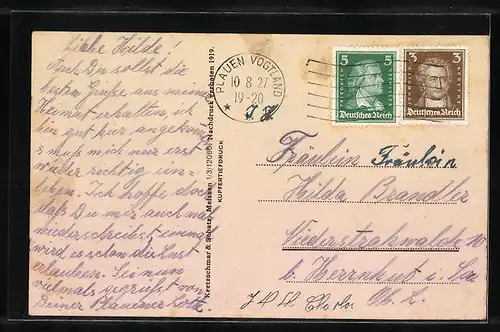 Liebe Hilde!
Auch Du sollst die
besten Grüße aus meiner
Heimat erhalten, ich
bin gut hier angekom-
muß mich nur erst
wieder richtig
leben. Ich hoffe doch
daß Du mir auch mal
wiederschreibst, einmal
wird es schon die Lust
erlauben. Sei nun
vielmals gegrüßt von
Deiner Plauener
Kretzschmar & Schatz, Meissen Nachdruck verboten 1919.
KUPFERTIEFDRUCK
PLAUEN VOGTLAND
10 8 27
19-20
5 5
Deutsches Reich
3 3
Deutsches Reich
Fräulein Fräulein
Hilda Brandler
Niederstrahwalde
b. Herrnhut i. Sa.